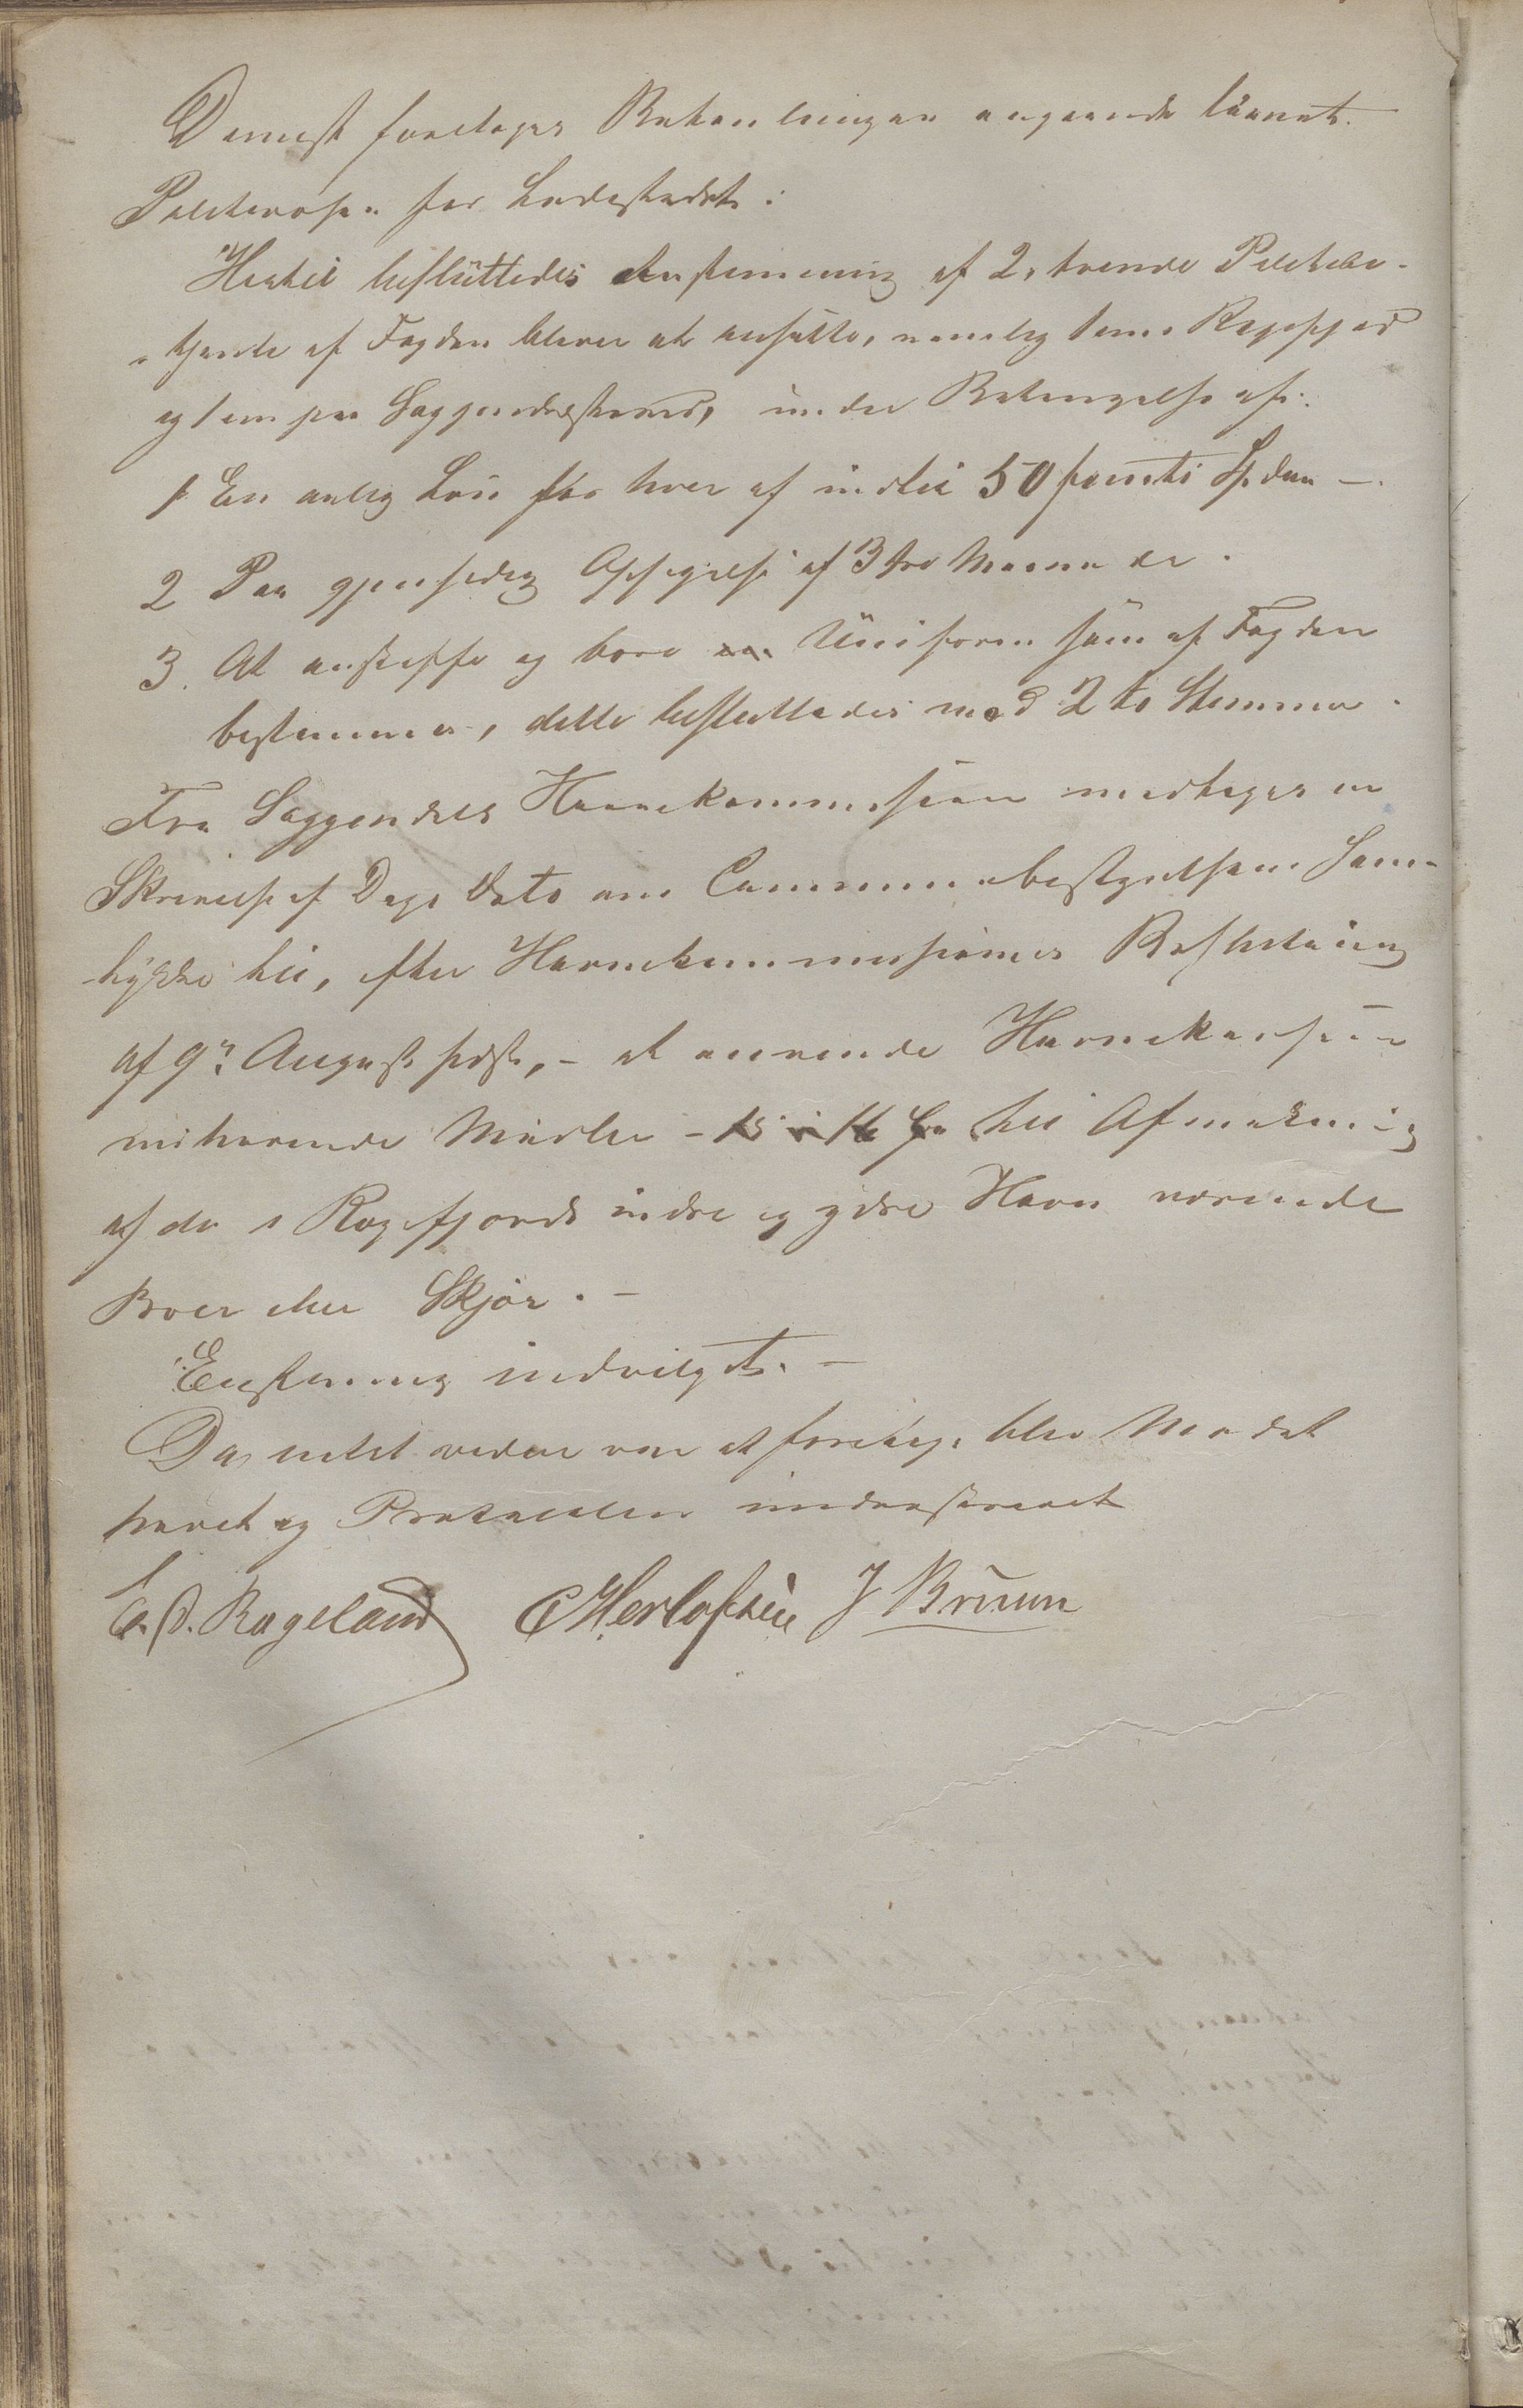 Dernæst foretoges Behandlingen angaaende lønnet
Politivæsen for Ladestedet:
Hertil besluttedes Enstemmig at 2, tvende Politibe-
tjente af Fogden bliver at ansætte, nemlig 1 een i Rægefjord
og 1 een paa Soggendalsstrand, under Betingelse af:
1 En aarlig Løn for hver af indtil 50 femti Spdlr —.
2 Paa gjensidig Opsigelse af 3 tre Maaneder.
3. At anskaffe og bære Uniform som af Fogden
bestemmes, dette besluttedes med 2 to Stemmer.
Fra Soggendals Havnekommission modtoges en
Skrivelse af Dags Dato om Communebestyrelsens Sam-
tykke til, efter Havnekommissionens Beslutning
af 9de August sidst, – at anvende Havnekassens
indhavende Midler – til Afmærkning
af de i Rægefjords indre og ydre Havn værende
Boer eller Skjær. –
Enstemmig indvilget. –
Da intet videre var at foretage blev Mødet
hævet og Protocollen underskrevet
Rageland C Herlofsen J Bruun